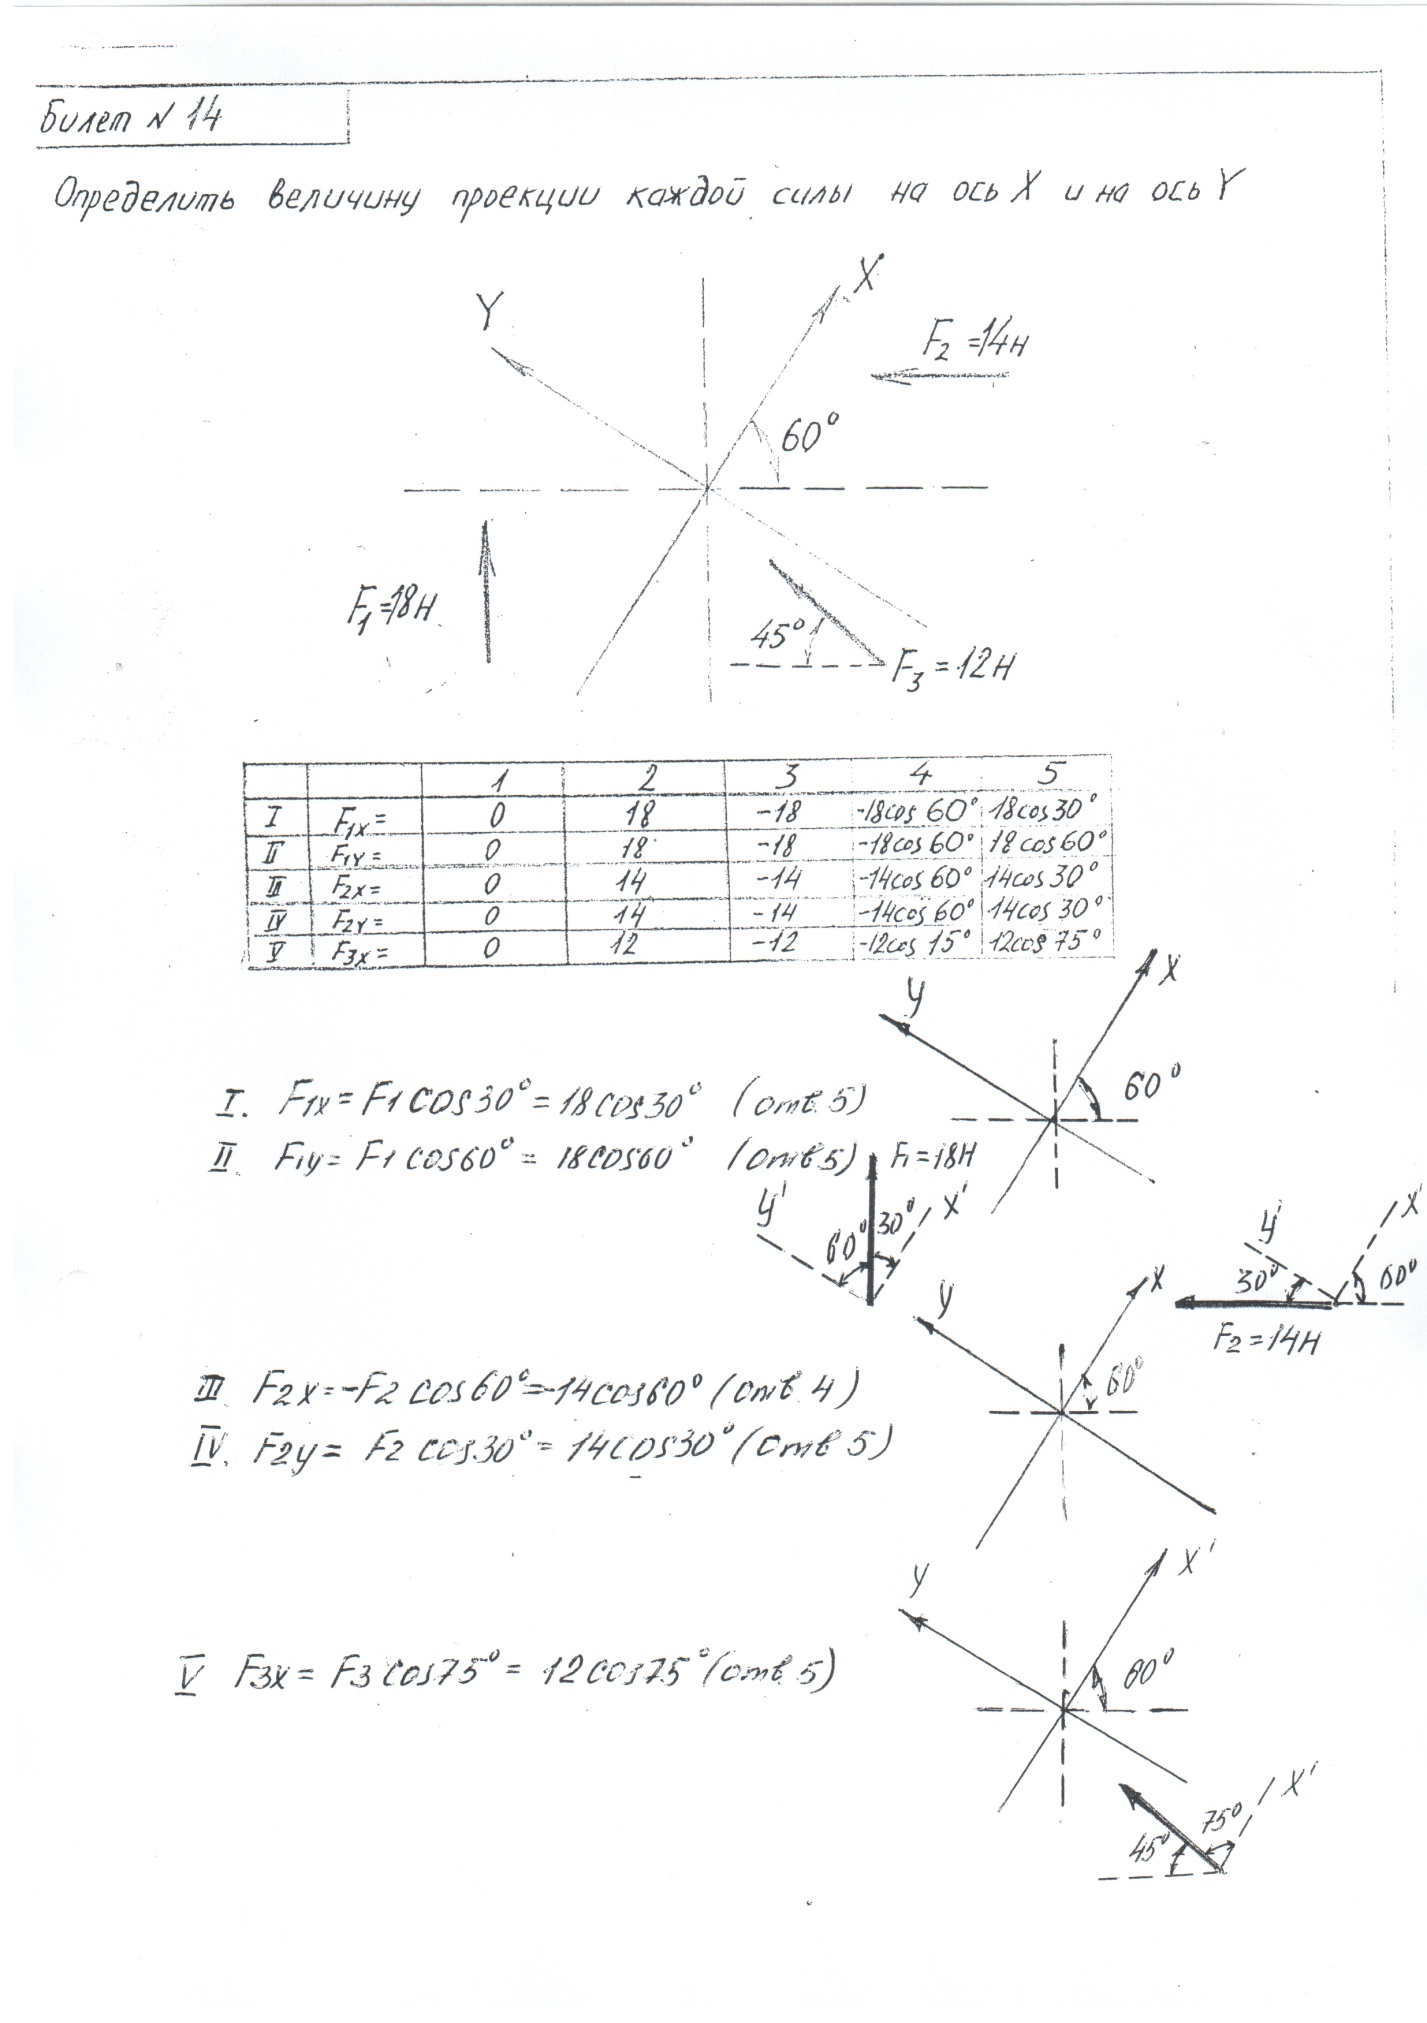 Билет N 14
Определить величину проекции каждой силы на ось X и на ось Y
X
Y
F2 =14н
60°
F1=18н
45°
F3 =12н
1 2 3 4 5
I F1x= 0 18 -18 -18cos 60° 18cos30°
II F1Y= 0 18 -18 -18cos60° 18cos60°
III F2x= 0 14 -14 -14cos60° 14cos30°
IV F2Y= 0 14 -14 -14cos60° 14cos30°
V F3x= 0 12 -12 -12cos 15° 12cos 75°
y X
60°
I. F1x=F1cos30°=18cos30° (отв.5)
II. F1y=F1cos60°= 18cos60° (отв5)
F1=18н
y' 60° 30° X'
y' X'
30° 60°
F2=14н
y X
60°
III F2x=-F2cos60°=-14cos60° (отв.4)
IV. F2y= F2 cos30°= 14cos30° (отв5)
y X'
60°
V F3x= F3cos75°= 12cos75° (отв.5)
45° 75° X'